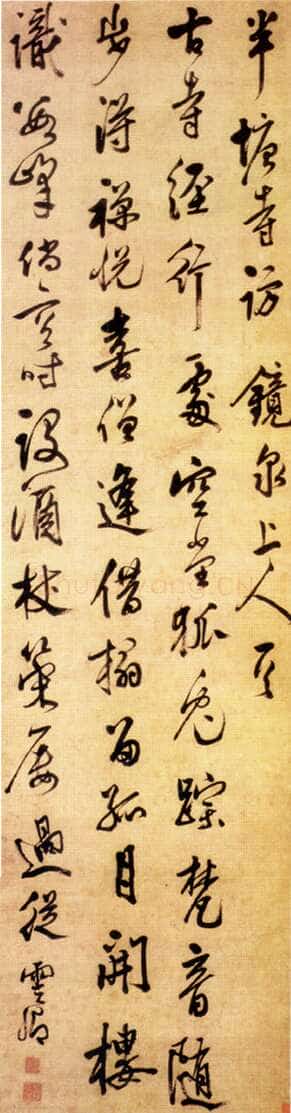 半塘寺訪 鏡泉上人
古寺經行處空堂狐兔踪梵音隨
步得禪悅喜僧逢借榻留孤月開樓
識數峰倘時設酒杖策屢過從 雲卿